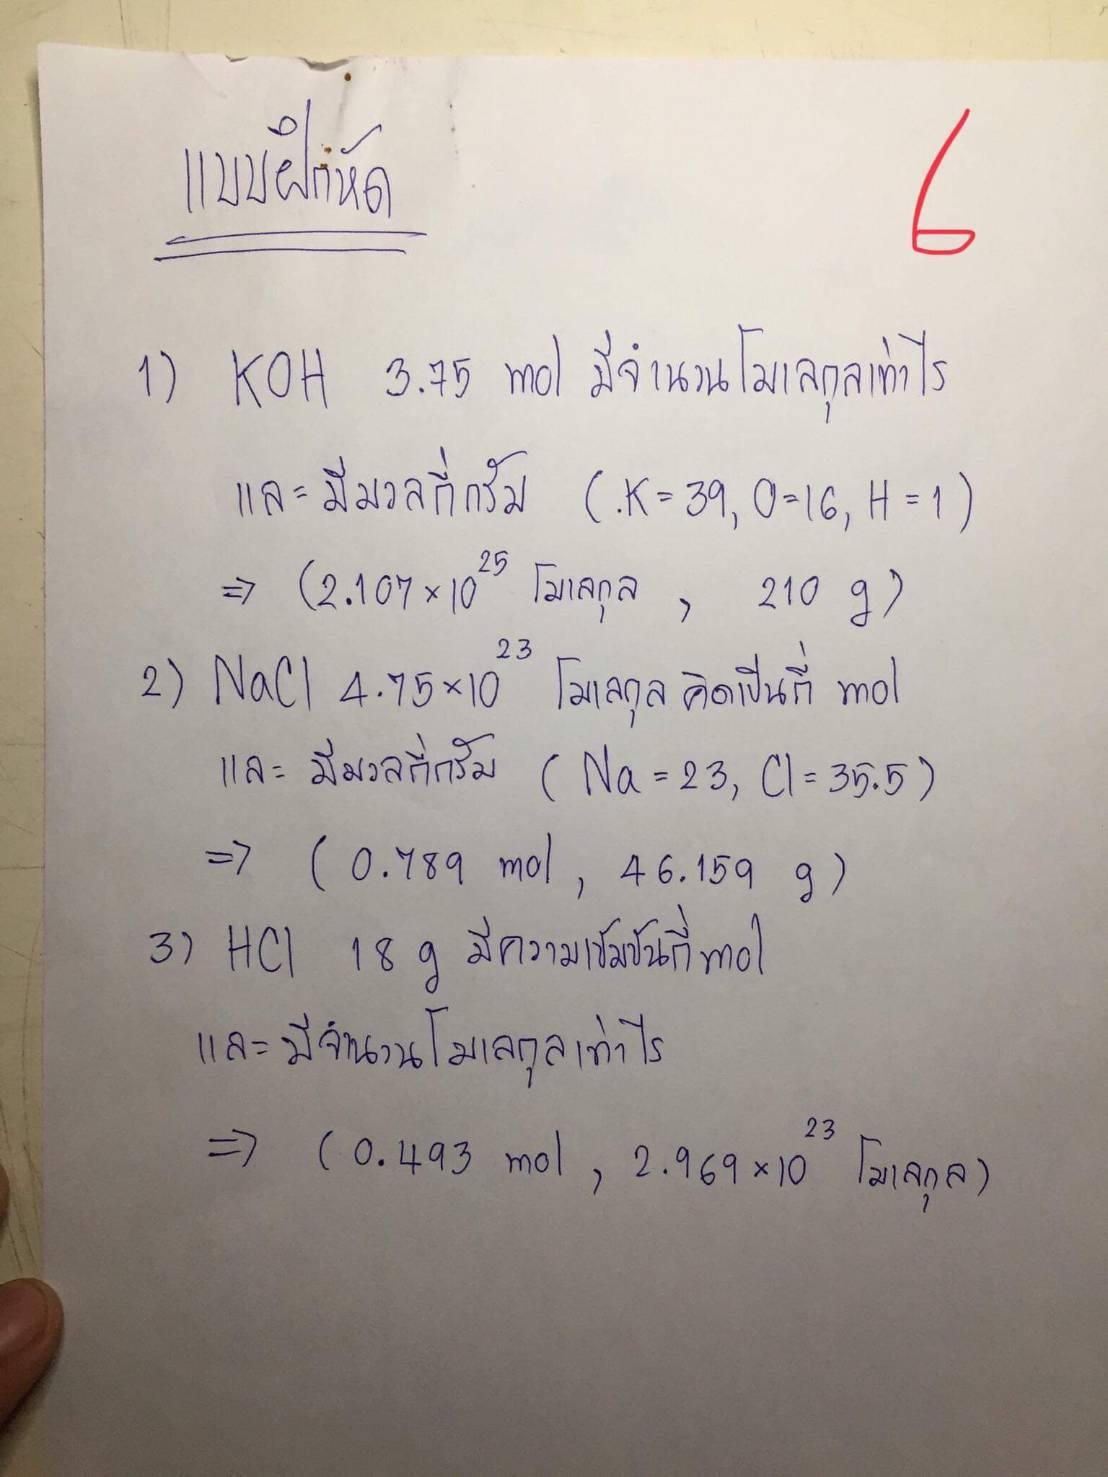 แบบฝึกหัด
6
1) KOH 3.75 mol มีจำนวนโมเลกุลเท่าไร
และมีมวลกี่กรัม (.K = 39, O = 16, H = 1)
⇒ (2.107 × 10²⁵ โมเลกุล , 210 g)
2) NaCl 4.75 × 10²³ โมเลกุล คิดเป็นกี่ mol
และ มีมวลกี่กรัม (Na = 23, Cl = 35.5)
⇒ (0.789 mol , 46.159 g)
3) HCl 18 g มีความเข้มข้นกี่ mol
และมีจำนวนโมเลกุลเท่าไร
⇒ (0.493 mol , 2.969 × 10²³ โมเลกุล)